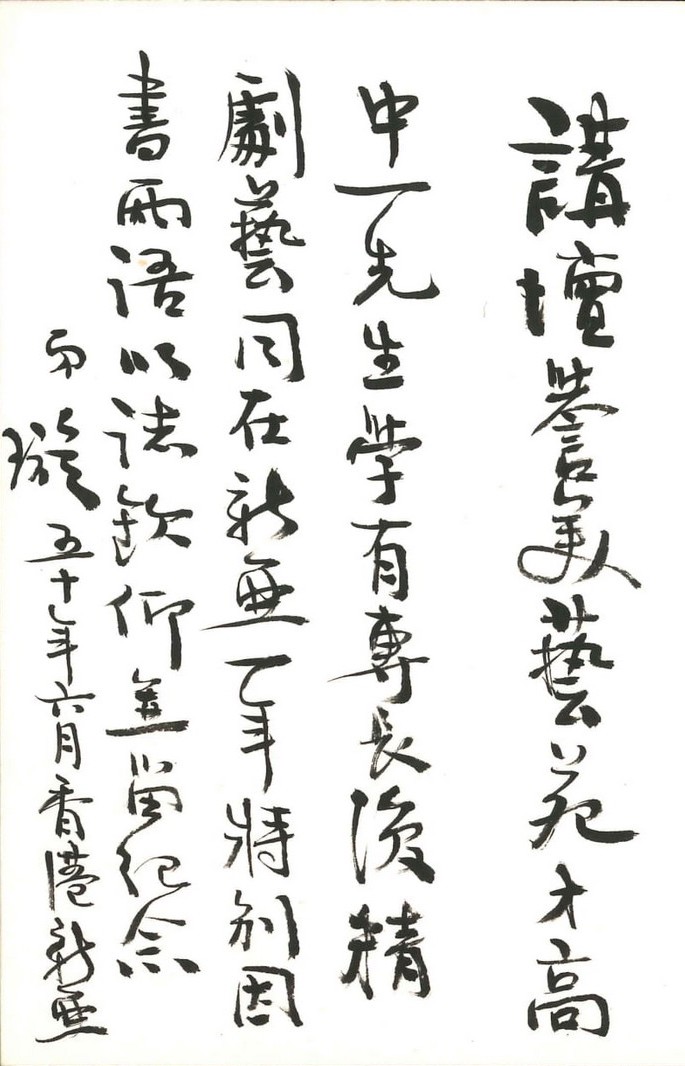 講壇譽美藝苑才高
中一先生學有專長復精
劇藝同在新亞一年將別因
書兩語以誌欽仰並留紀念
璇 五十年六月香港新亞